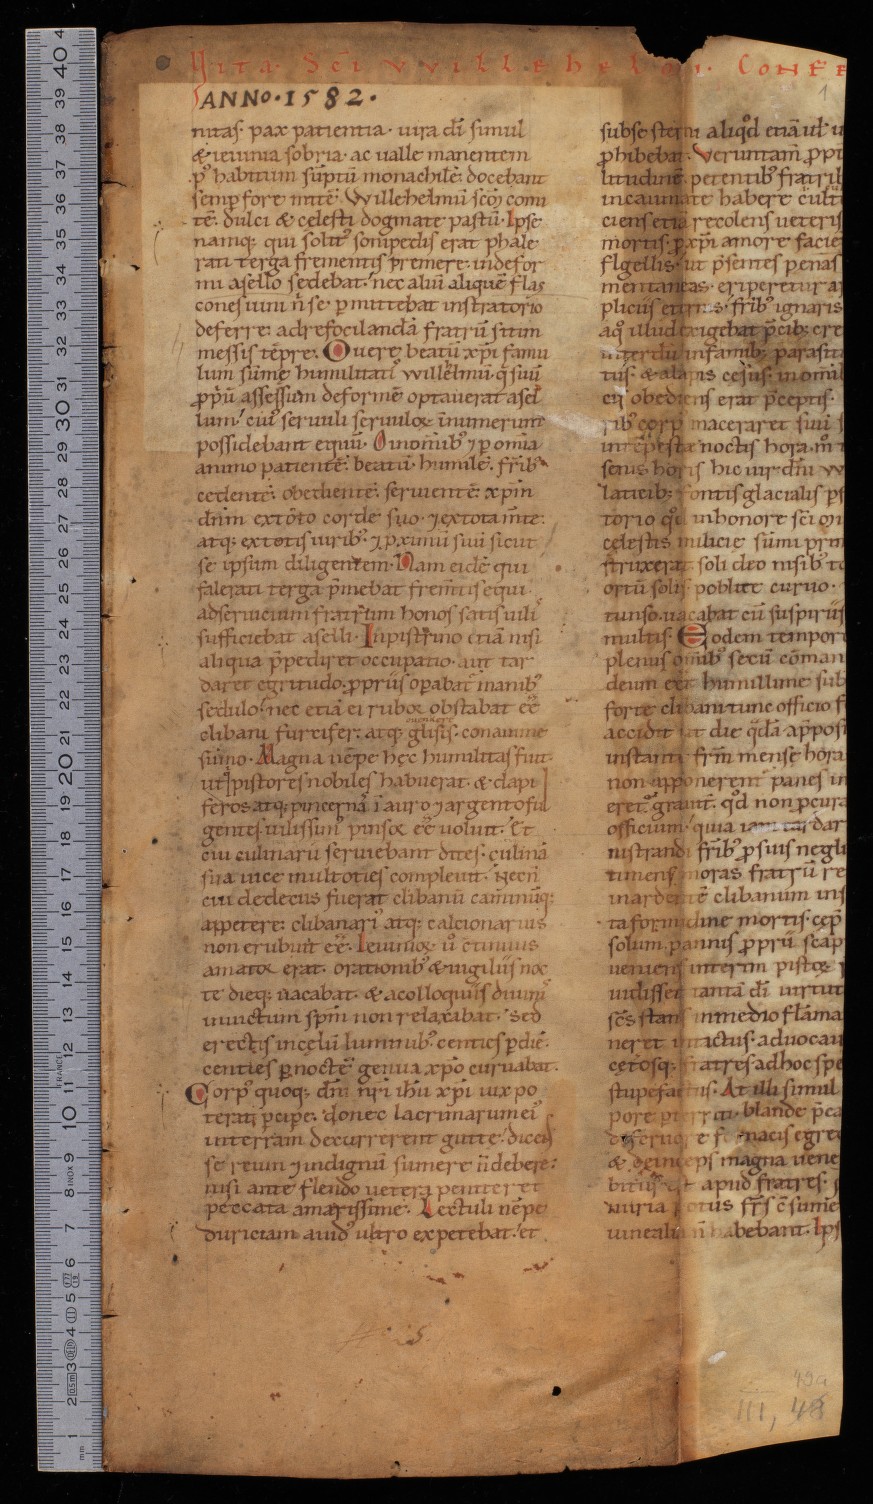 Vita. Sc̄i vvillehelmi. Confe
ANNO·1582·
1
nitas. pax patientia. uita dī simul
& ieiunia sobria. ac ualle manentem
p̱ habitum sūptū monachilē. docebant
semp fore mitē. Willehelmū
tē. dulci & celesti dogmate pastū. Ipse
namq; qui solitꝰ sonipedis erat phale
rati terga frementis p̄mere. indefor
mi asello sedebat. nec aliū aliquē flas
cones uini n̄ se pmittebat instratorio
deferre. ad refocilandā fratrū sitim
messis tēpre. O uere beatū xp̄i famu
lum sūme humilitatis willelmū. q̄ suū
ppriū assessum deformē optauerat asel
lum. cuiꝰ seruuli seruuloꝝ innumerum
possidebant equū. O in omībꝰ ⁊ p omīa
animo patientē. beatū. humilē. fr̄ibꝰ
cedentē. obedientē. seruientē. xp̄m
dn̄m ex tōto corde suo. ⁊ ex tota m̄te.
atq; ex totis uiribꝰ. ⁊ pximū suū sicut
se ipsum diligentem. Nam eidē qui
falerati terga p̄mebat frem̄tis equi.
ad seruicium fratrum honos satis uilis
sufficiebat aselli. In pistrino etiā nisi
aliqua p̄pediret occupatio. aut tar
daret egritudo. pprīis opabat manibꝰ
sedulo. nec etiā ei rubor obstabat eē
clibani furcifer. atq; conamine
sūmo. Magna nēpe hec humilitas fuit.
ut q pistores nobiles habuerat. & dapi
feros atq; pincernā ī auro ⁊ argento ful
gentes uilissimꝰ pinsor eē uoluit. Et
cui culinarū seruiebant dites. culinā
sua uice multoties compleuit. Necn̄
cui dedecus fuerat clibanū caminūq;
appetere. clibanariꝰ atq; calcionarius
non erubuit eē. Ieiunioꝝ ū cōtinuus
amator erat. orationibꝰ & uigiliis noc
te dieq; uacabat. & a colloquiis diuinis
inuictum spm̄ non relaxabat. Sed
erectis in celū luminibꝰ. centies p diē.
centies p noctē genua xp̄o curuabat.
Corpꝰ quoq; dn̄i n̄ri ih̄u xp̄i uix po
terat pcipe. donec lacrimarum eiꝰ
in terram decurrerent gutte. dicens
se reum ⁊ indignū sumere ii debere.
nisi ante flendo uetera peniteret
peccata amarissime. Lectuli nēpe
duriciam auidꝰ ultro expetebat. et
subse sterni aliq̄d etiā ul̄ u
phibebat. Veruntam̄ ppt
litudinē petentibꝰ fratrib
incaminate habere cult
ciens etiā recolens ueteris
mortis. p xp̄i amore facie
flgellis. ut p̄sentes penas
mentaneas. eriperetur a
pliciis eternis. fr̄ibꝰ ignaris
aq̄ illud exigebat p̄cibꝫ cre
interdū infamibꝫ parasita
tus. & alapis cesus. in omīb
eis obediens erat p̄ceptis.
ribꝰ corpꝰ maceraret suū
intēpesta noctis hora. m̄
senis horis hic uir dn̄i w
laticibꝫ fontis glacialis ps
torio qd̄ in honore sc̄i
celestis milicie sūmi
struxerat. soli deo nisibꝰ to
ortū solis poblite curuo.
tunso. uacabat cū suspiriis
multis. Eodem tempore
plenius omībꝰ secū cōman
deum erat humillime sub
forte clibani tunc officio f
accidit ut die q̄dā apposi
instanti fr̄m mense hora
non apponerent panes in
eret. grauit. qd̄ non pcura
officium. quia iam tardar
nistrandi fr̄ibꝰ p suis negli
timens moras fratrū re
in ardentē clibanum ins
ta formidine mortis. cep̄
solum. pannis pprii scap
ueniens interim pistor
uidisset tantā dī uirtut
sc̄s stans in medio flāma
neret inuictus. aduocau
cetosq; fratres ad hoc spe
stupefactis. At illi simul
pore blande p̄ca
de feruore fornacis egre
& deinceps magna uene
bitus est apud fratres.
miria totus fr̄s ē sūme
uinealia n̄ habebant. Ips
49a
III, 48